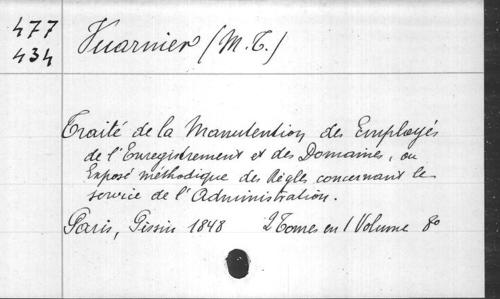 477
434
Vuarnier (M.T.)
Traité de la Manutention des Employés
de l'Enregistrement et des Domaines, ou
Exposé méthodique des Règles concernant le
service de l'Administration.
Paris, Gissin 1848 2 Tomes en 1 Volume 8º